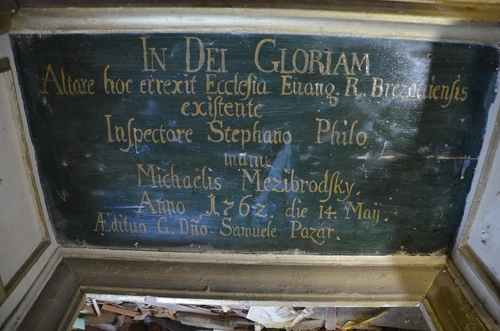 IN DEI GLORIAM
Altare hoc erexit Ecclesia Euang. R. Brezouiensis
existente
Inspectore Stephano Philo
manu
Michaëlis Mezibrodsky.
Anno 1762. die 14. Maij.
Ædituo G. Dño. Samuele Pazár.